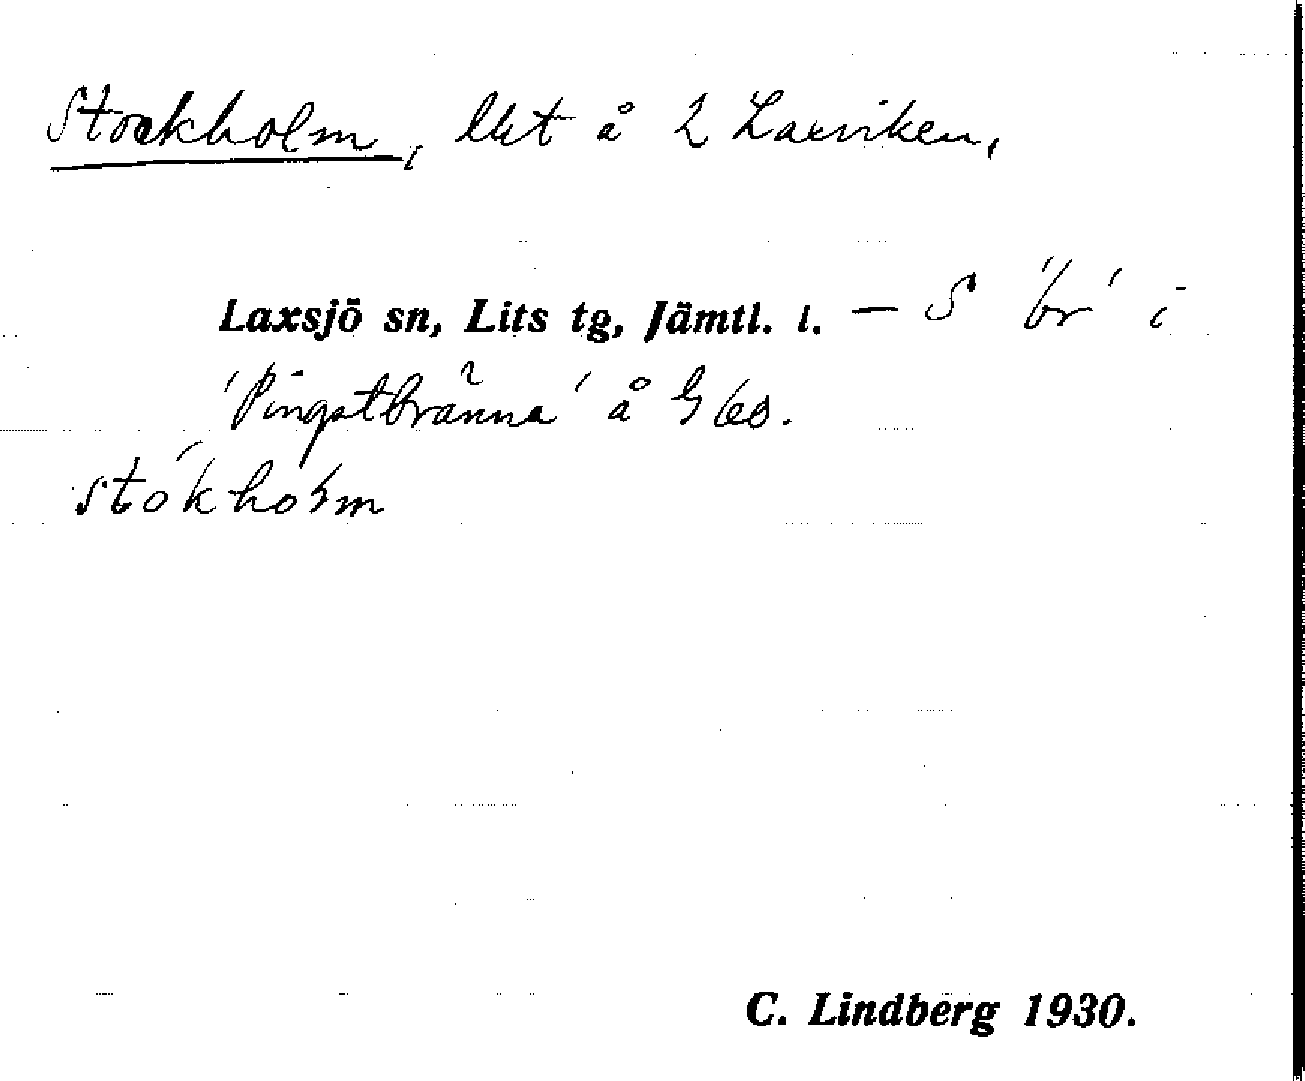 Stockholm, lllt å 2 Laxviken,
Laxsjö sn, Lits tg, Jämtl. l. — S 'br' i
'Pingstbränna' å G 60.
stókholm
C. Lindberg 1930.